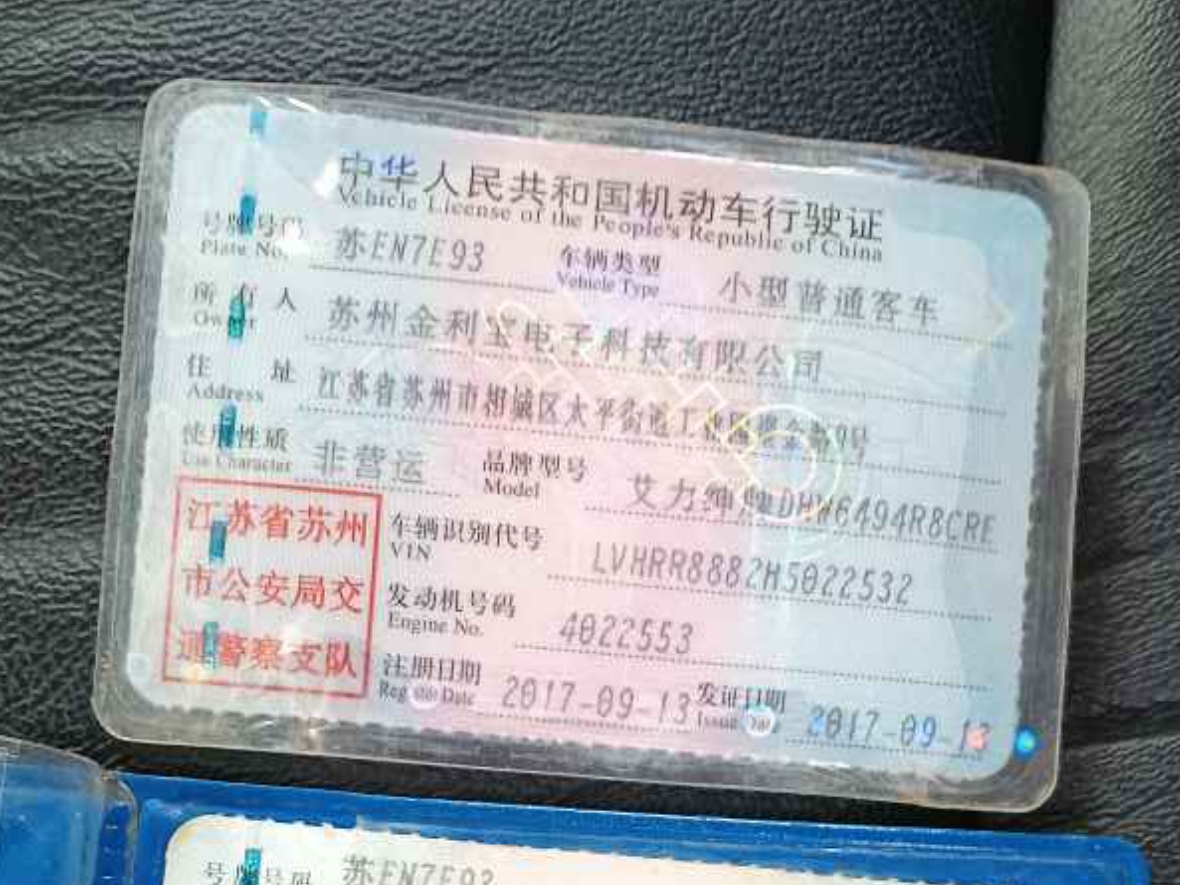 中华人民共和国机动车行驶证
Vehicle License of the People's Republic of China
号牌号码 苏EN7E93 车辆类型 小型普通客车
Plate No. Vehicle Type
所有人 苏州金利宝电子科技有限公司
Owner
住址 江苏省苏州市相城区太平街道工业园 9号
Address
使用性质 非营运 品牌型号 艾力绅牌DHW6494R8CRE
Use Character Model
江苏省苏州
市公安局交
通警察支队
车辆识别代号 LVHRR8882H5022532
VIN
发动机号码 4022553
Engine No.
注册日期 2017-09-13 发证日期 2017-09-13
Register Date Issue Date
号牌号码 苏EN7E93